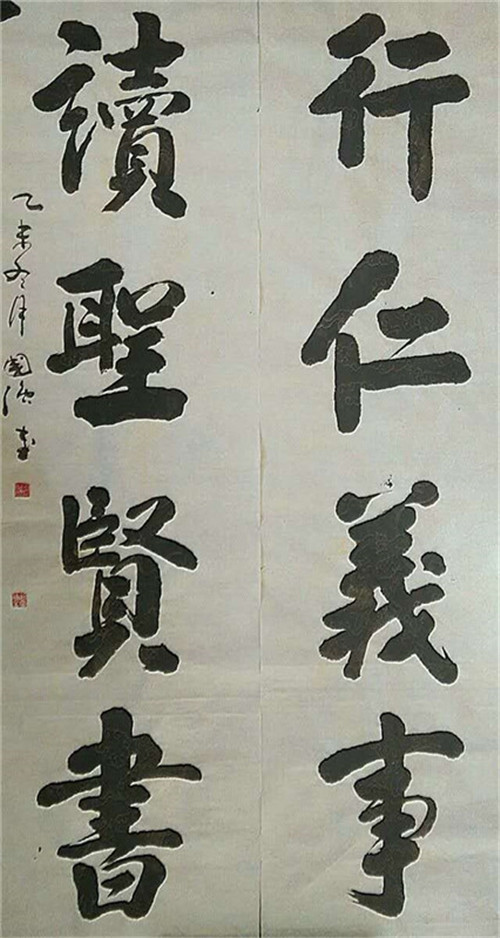 行仁義事
讀聖賢書
乙未冬月國強書